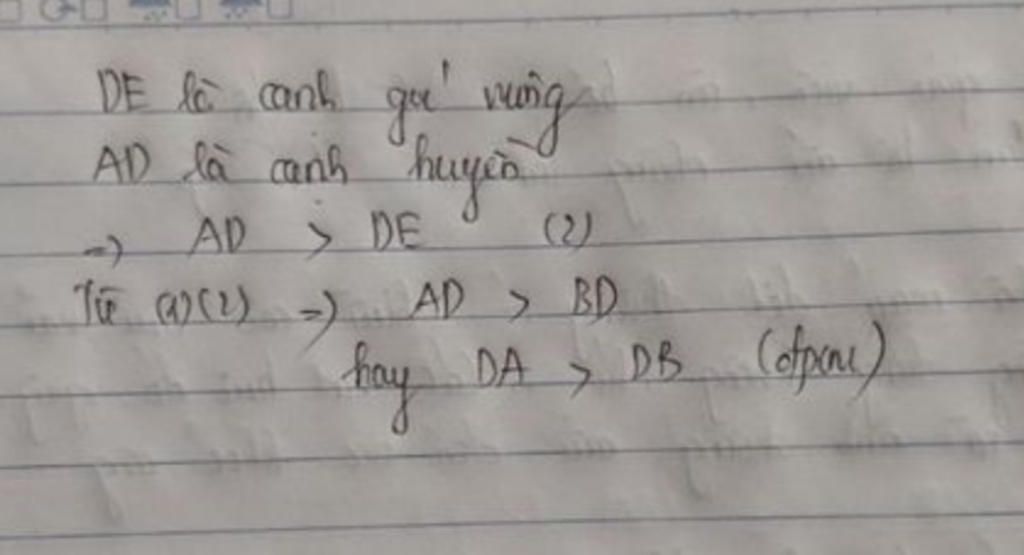 DE là cạnh góc vuông
AD là cạnh huyền
=> AD > DE (2)
Từ (1)(2) => AD > BD
hay DA > DB (đpcm)